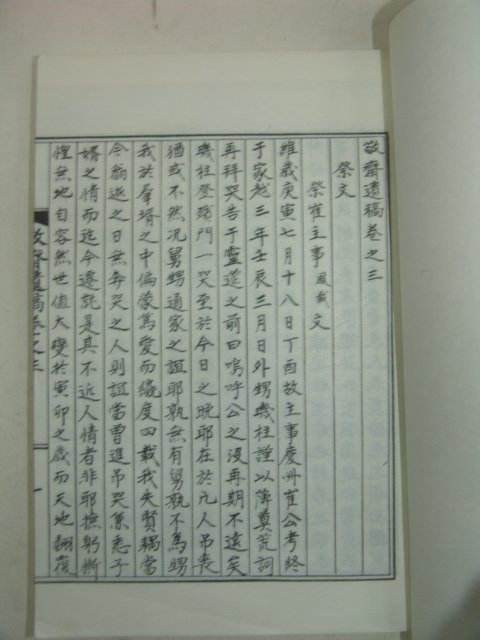 敬齋遺稿卷之三
祭文
祭崔主事鳳載文
維歲庚寅七月十八日丁酉故主事慶州崔公考終
于家越三年壬辰三月日外甥璣柱謹以薄奠荒詞
再拜哭告于靈筵之前曰嗚呼公之沒再期不遠矣
璣柱登殯門一哭至於今日之晚耶在於凡人吊喪
猶或不然況舅甥通家之誼耶孰無有舅孰不爲甥
我於羣壻之中偏蒙篤愛而纔度四載我失賢耦當
今翁逝之日無奔哭之人則誼當曾進吊哭兼悉子
婿之情而迄今遷就是其不近人情者非耶撫躬慚
惶無地自容然世值大變於寅卯之歲而天地翻覆
敬齋遺稿卷之三
一